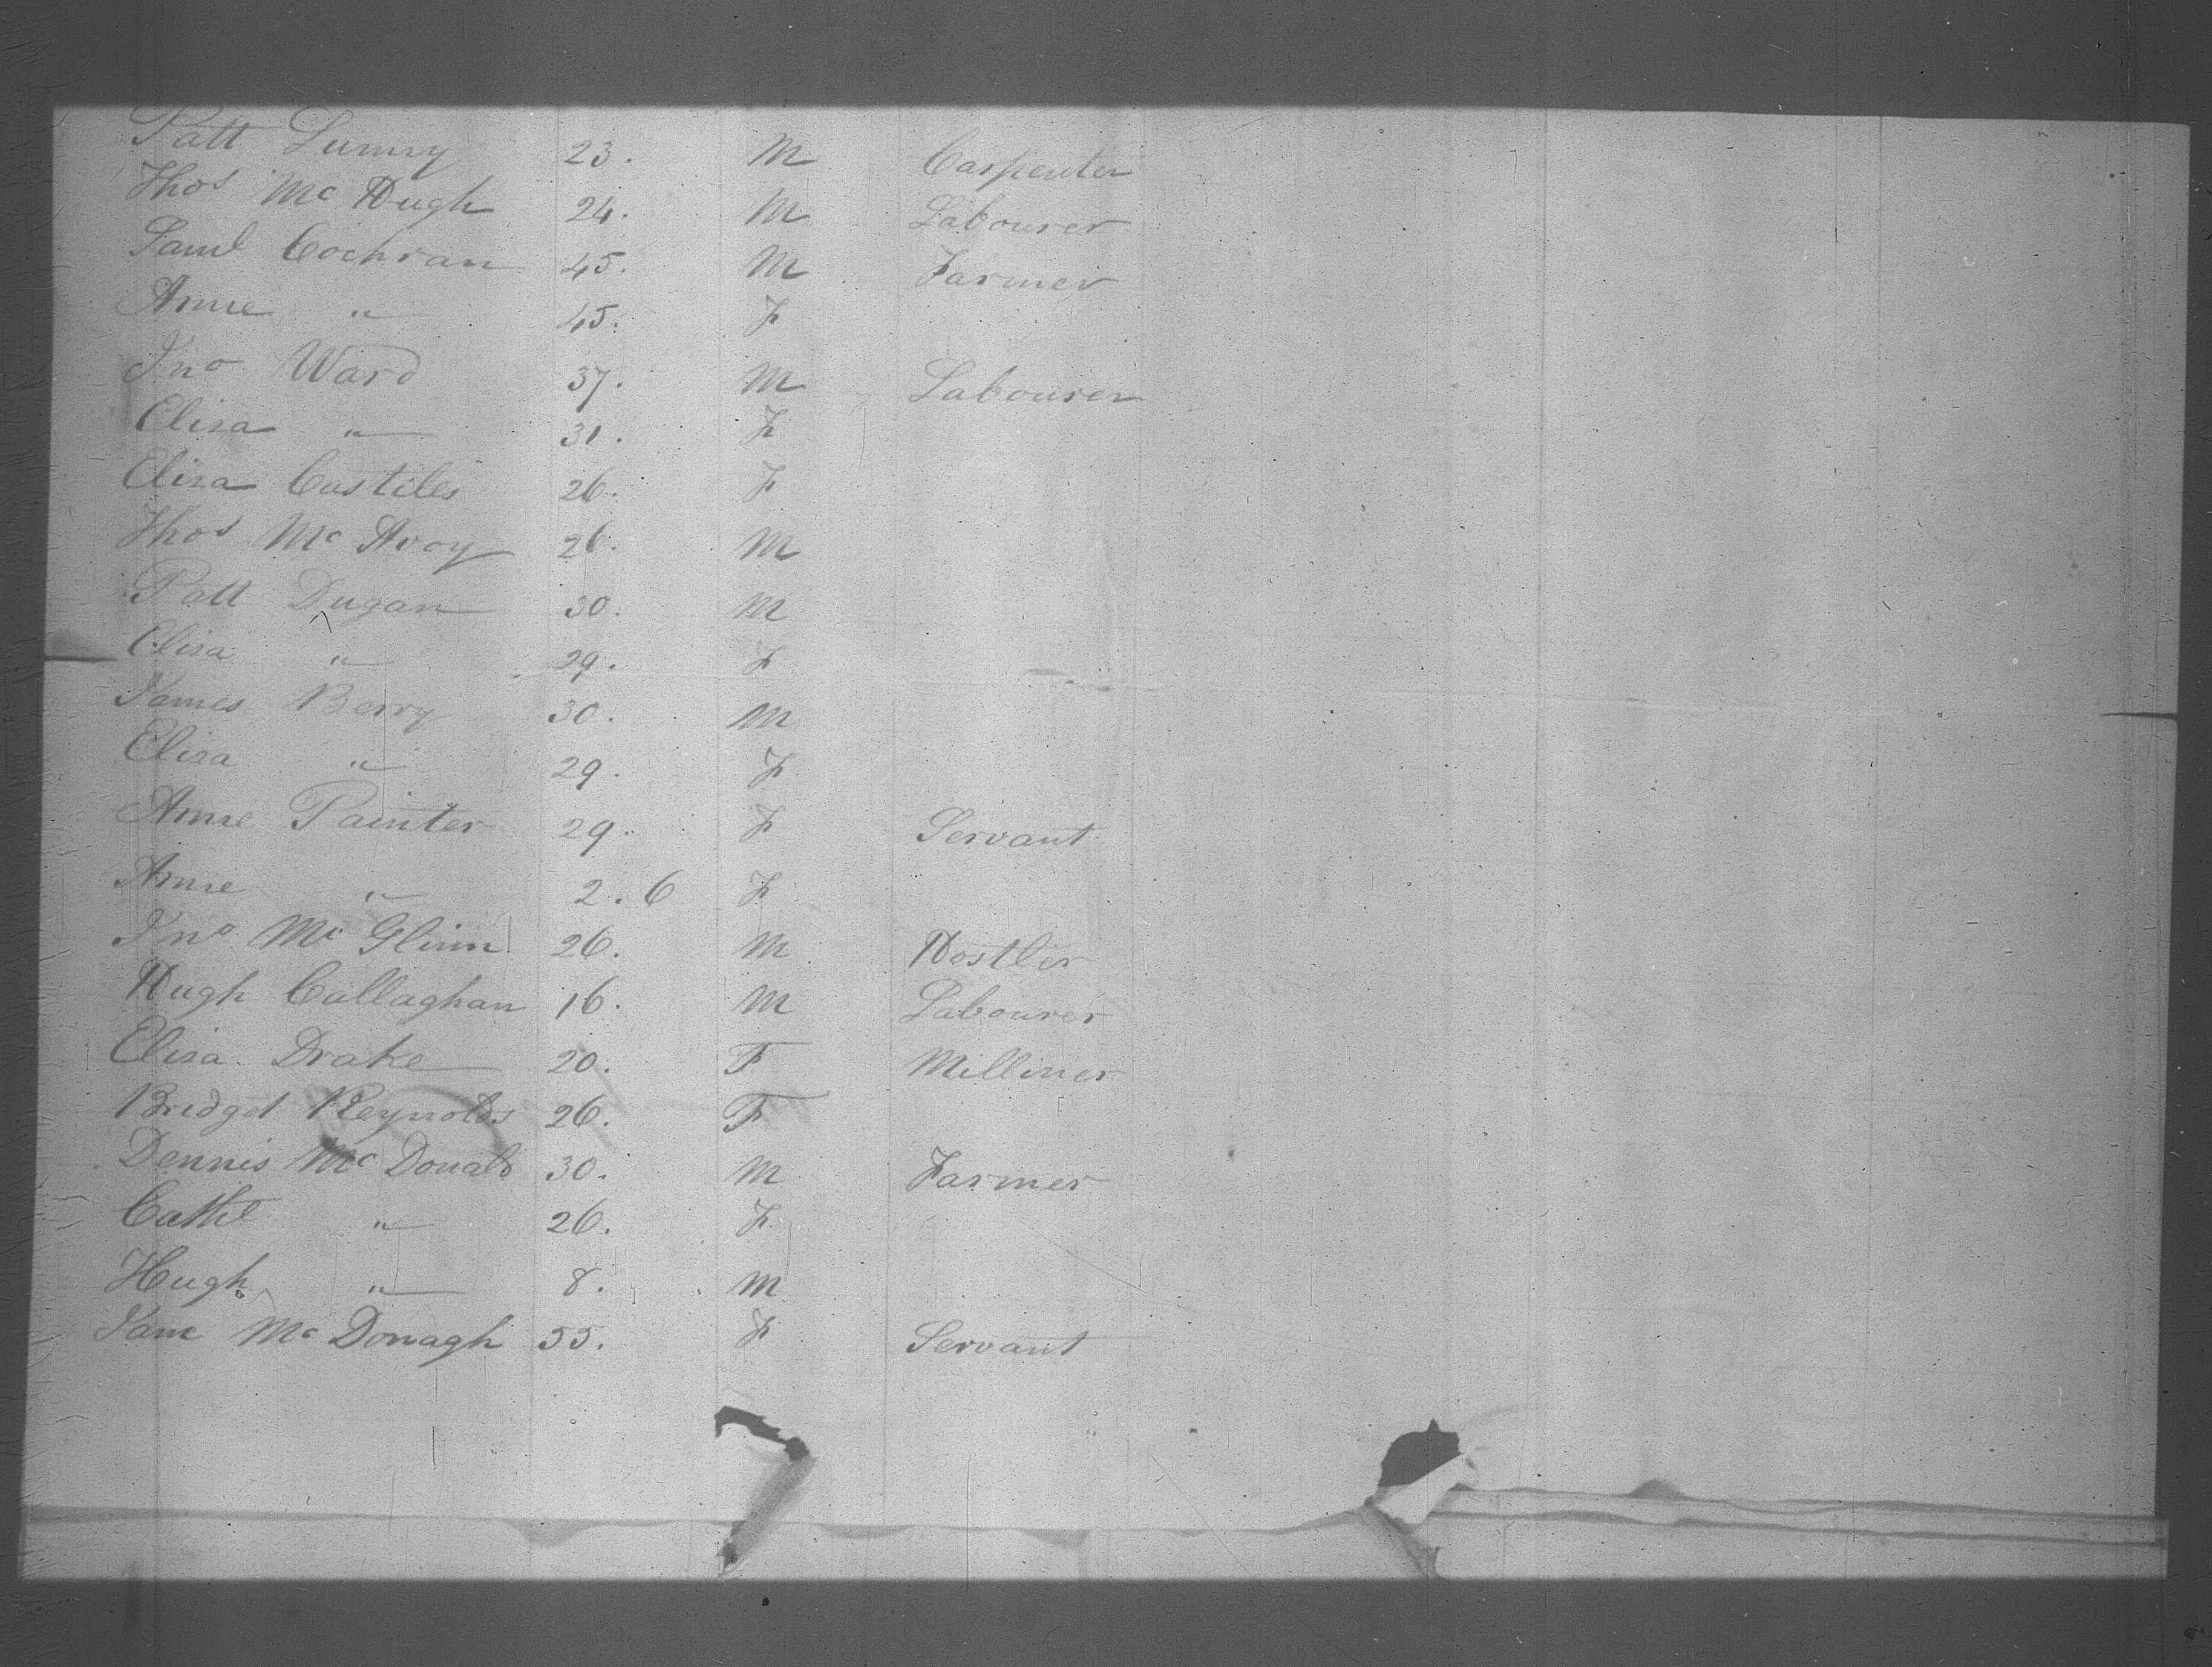 Patt Lunny 23. M Carpenter
Thos Mc Hugh 24. M Labourer
Saml Cochran 45. M Farmer
Anne " 45. F
Jno Ward 37. M Labourer
Elisa " 31. F
Elisa Costiles 26. F
Thos Mc Avoy 26. M
Patt Dugan 30. M
Elisa " 29. F
James Berry 30. M
Elisa " 29. F
Anne Painter 29. F Servant
Anne " 2. 6 F
Jno Mc Glinn 26. M Hostler
Hugh Callaghan 16. M Labourer
Elisa Drake 20. F Milliner
Bridget Reynolds 26. F
Dennis Mc Donald 30. M Farmer
Cathe " 26. F
Hugh " 8. M
Jane Mc Donagh 55. F Servant